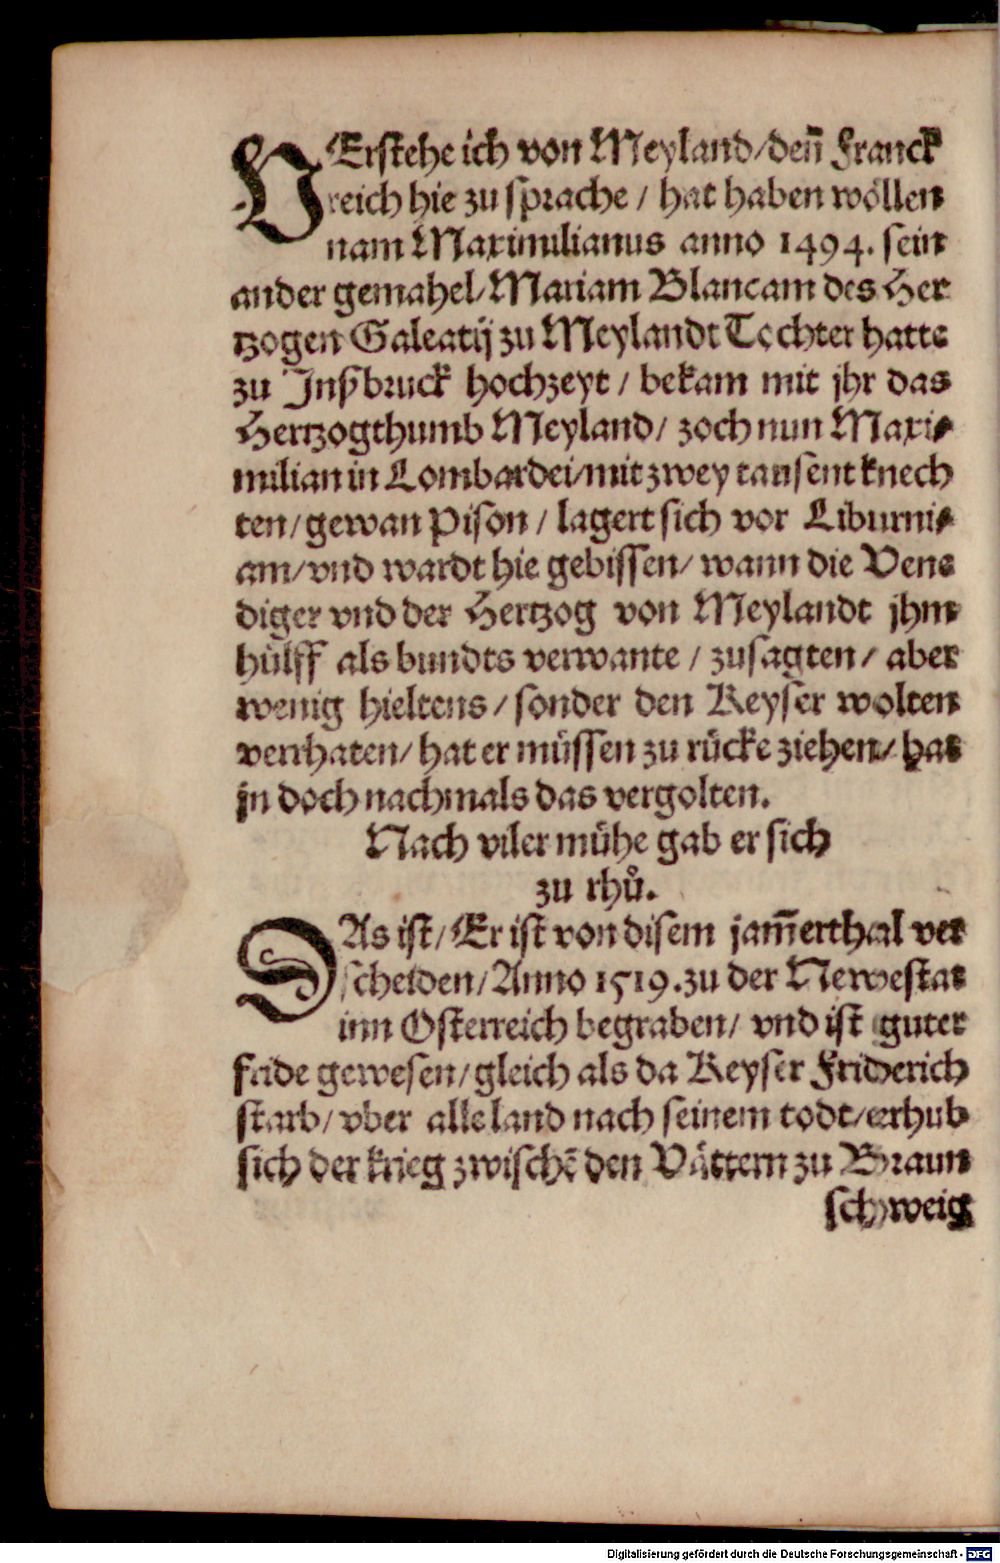 VErstehe ich von Meyland/ den̄ Franck
reich hie zu sprache / hat haben wöllen
nam Maximilianus anno 1494. sein
ander gemahel/ Mariam Blancam des Her
tzogen Galeatij zu Meylandt Tochter hatte
zu Inßbruck hochzeyt / bekam mit jhr das
Hertzogthumb Meyland/ zoch nun Maxi-
milian in Lombardei/ mit zwey tausent knech
ten/ gewan Pison / lagert sich vor Liburni-
am/ vnd wardt hie gebissen/ wann die Vene
diger vnd der Hertzog von Meylandt jhm
hülff als bundts verwante / zusagten/ aber
wenig hieltens / sonder den Keyser wolten
verrhaten/ hat er müssen zu rücke ziehen/ hat
jn doch nachmals das vergolten.
Nach viler mühe gab er sich
zu rhů.
DAs ist/ Er ist von disem jam̄erthal ver
scheiden/ Anno 1519. zu der Newestat
inn Osterreich begraben/ vnd ist guter
fride gewesen/ gleich als da Keyser Friderich
starb/ vber alle land nach seinem todt/ erhub
sich der krieg zwischē den Vättern zu Braun
schweig
Digitalisierung gefördert durch die Deutsche Forschungsgemeinschaft - DFG